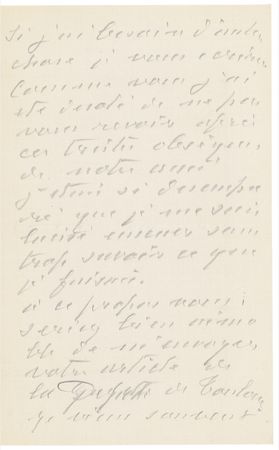 Si j'ai besoin d'autre
chose à vous écrire
Comme vous j'ai
été désolé de ne pas
vous revoir après
ces tristes obsèques
de notre ami
j'étais si désempa
ré que je me suis
laissé emmener sans
trop savoir ce que
je faisais.
à ce propos vous
seriez bien aima
ble de m'envoyer
votre article de
la Dépêche de Toulouse
je viens souvent